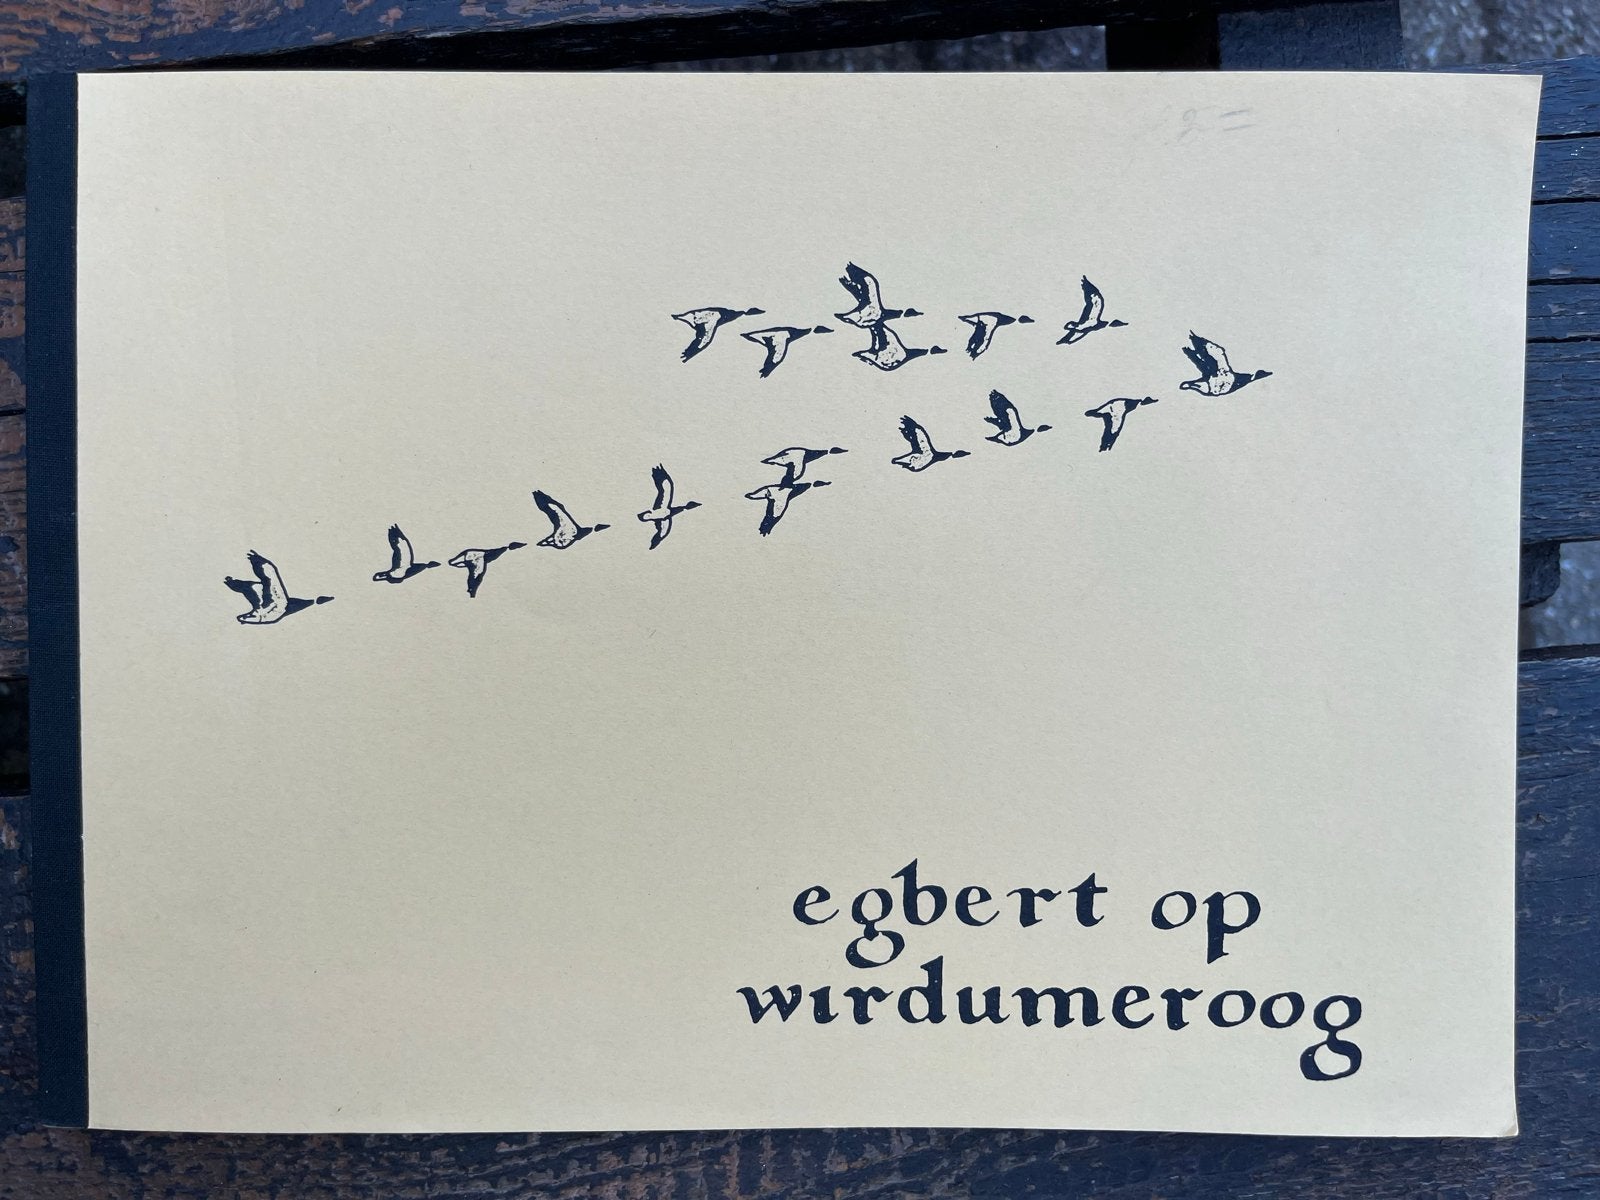 egbert op
wirdumeroog